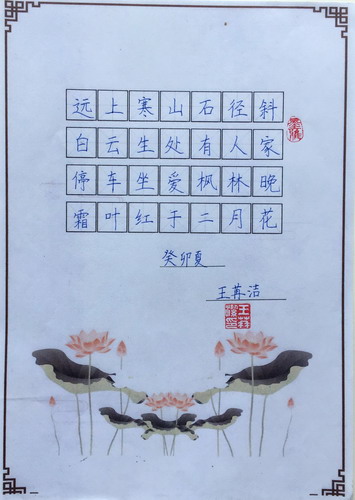 远上寒山石径斜
白云生处有人家
停车坐爱枫林晚
霜叶红于二月花
癸卯夏
王苒洁